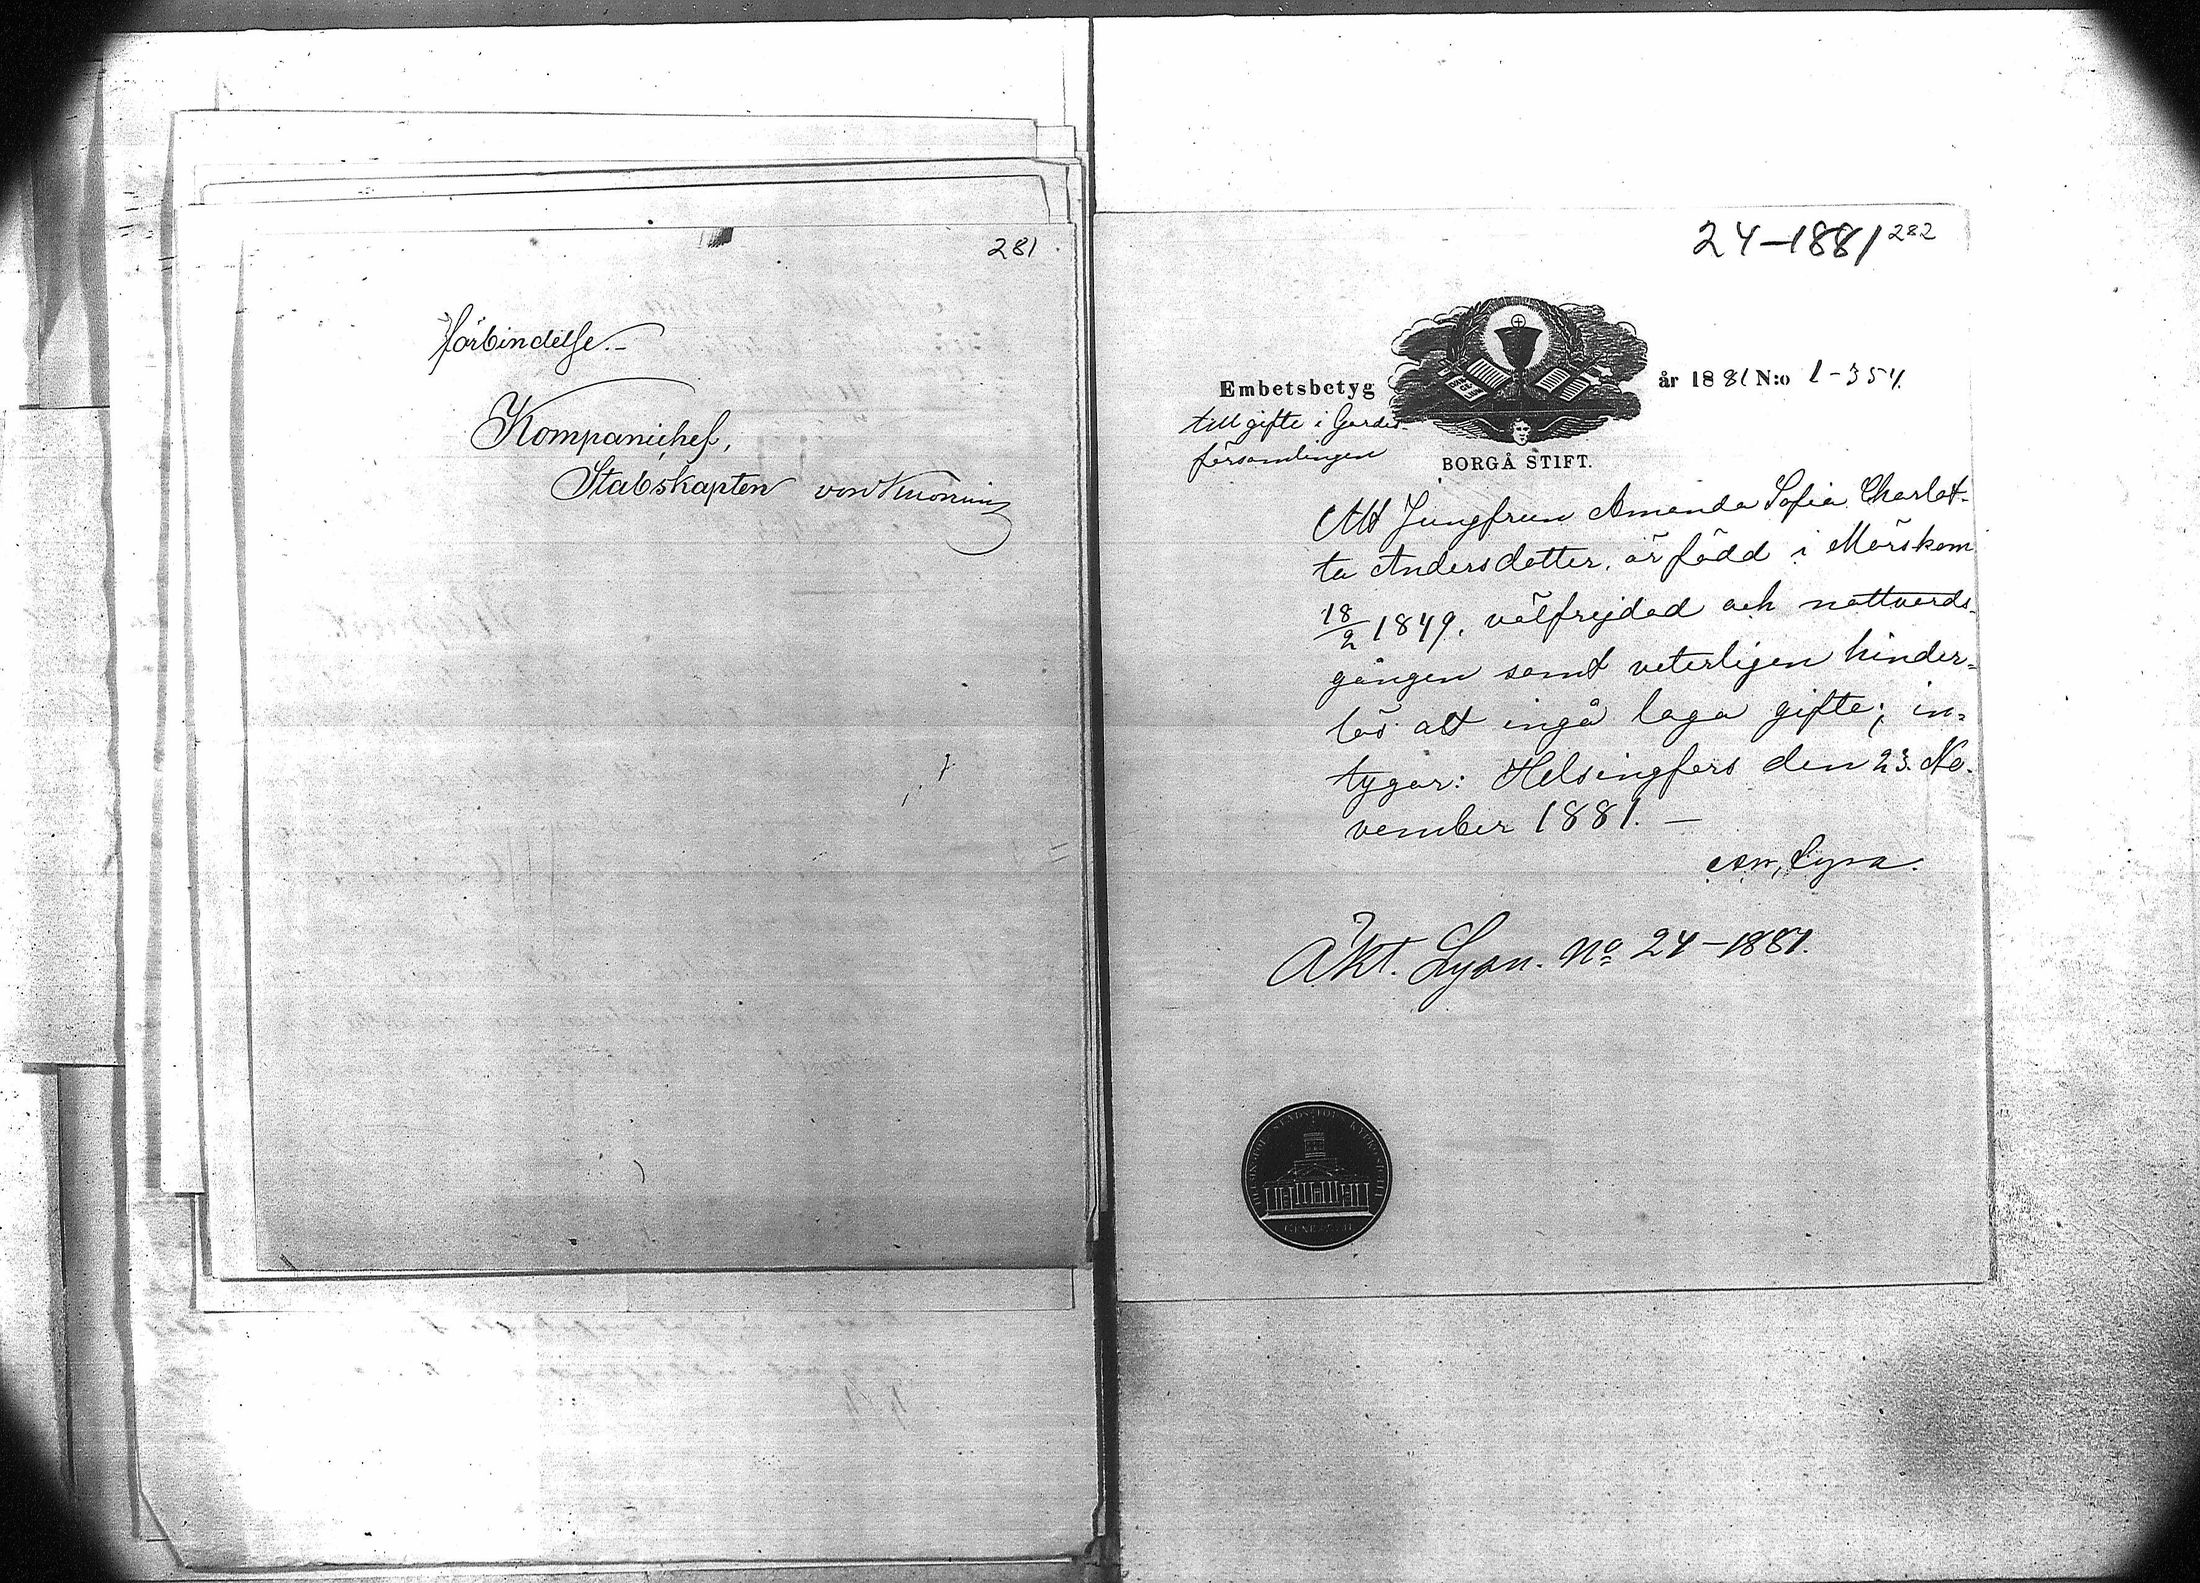 281
förbindelse.-
Kompanichef,
Stabskapten von Knorring
24-1881 282
Embetsbetyg år 1881 N:o 1-354.
till gifte i Gardes-
församlingen
BORGÅ STIFT.
Att Jungfrun Amanda Sofia Charlot-
ta Andersdotter, är född i Mörskom
18/2 1849, välfrejdad och nattvards-
gången samt veterligen hinder-
lös att ingå laga gifte; in-
tygar: Helsingfors den 23. No-
vember 1881. —
Äkt. Lysn. No 24-1881.